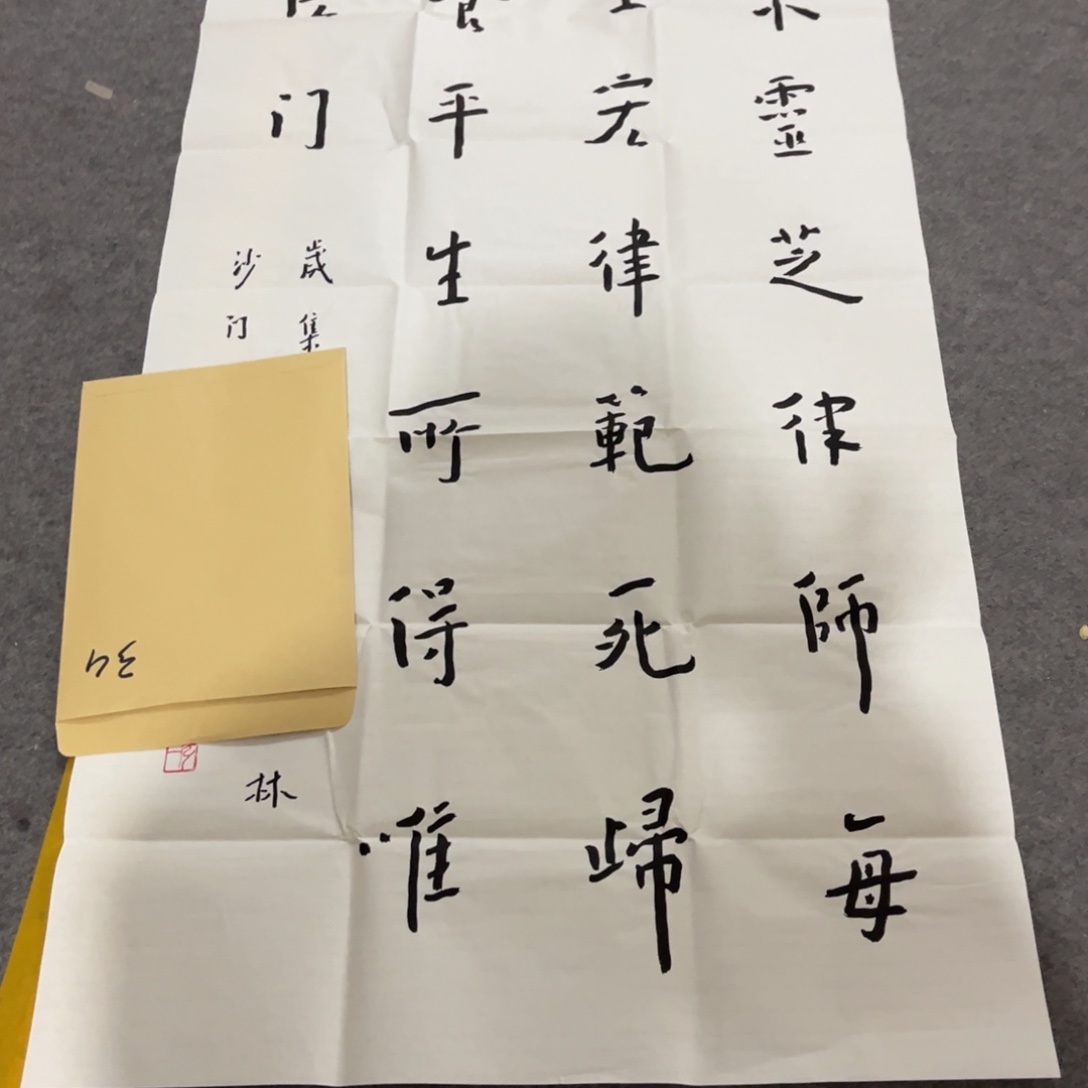 靈芝律師每
宏律範死歸
平生所得唯
门
歲集
林
沙门
34